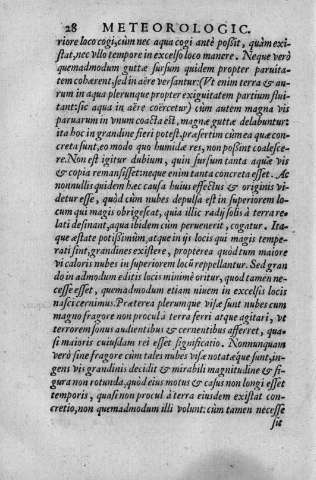 28 METEOROLOGIC.
riore loco cogi, cùm nec aqua cogi antè possit, quàm exi-
stat, nec vllo tempore in excelso loco manere. Neque verò
quemadmodum guttæ sursum quidem propter paruita-
tem cohærent, sed in aëre versantur: (Vt enim terra & au-
rum in aqua plerunque propter exiguitatem partium flui-
tant: sic aqua in aëre coërcetur) cùm autem magna vis
paruarum in vnum coacta est, magnæ guttæ delabuntur:
ita hoc in grandine fieri potest, præsertim cùm ea quæ con-
creta sunt, eo modo quo humidæ res, non possint coalesce-
re. Non est igitur dubium, quin sursum tanta aquæ vis
& copia remansisset: neque enim tanta concreta esset. Ac
nonnullis quidem hæc causa huius effectus & originis vi-
detur esse, quòd cùm nubes depulsa est in superiorem lo-
cum qui magis obrigescat, quia illic radij solis à terra re-
lati desinant, aqua ibidem cùm peruenerit, cogatur. Ita-
que æstate potissimùm, atque in ijs locis qui magis tempe-
rati sint, grandines existere, propterea quòd tum maiore
vi caloris nubes in superiorem locũ repellantur. Sed gran-
do in admodum editis locis minimè oritur, quod tamen ne-
cesse esset, quemadmodum etiam niuem in excelsis locis
nasci cernimus. Præterea plerumque visæ sunt nubes cum
magno fragore non procul à terra ferri atque agitari, vt
terrorem sonus audientibus & cernentibus afferret, qua-
si maioris cuiusdam rei esset significatio. Nonnunquam
verò sine fragore cùm tales nubes visæ notatæque sunt, in-
gens vis grandinis decidit & mirabili magnitudine & fi-
gura non rotunda, quòd eius motus & casus non longi esset
temporis, quasi non procul à terra eiusdem exstitat con-
cretio, non quemadmodum illi volunt: cùm tamen necesse
sit